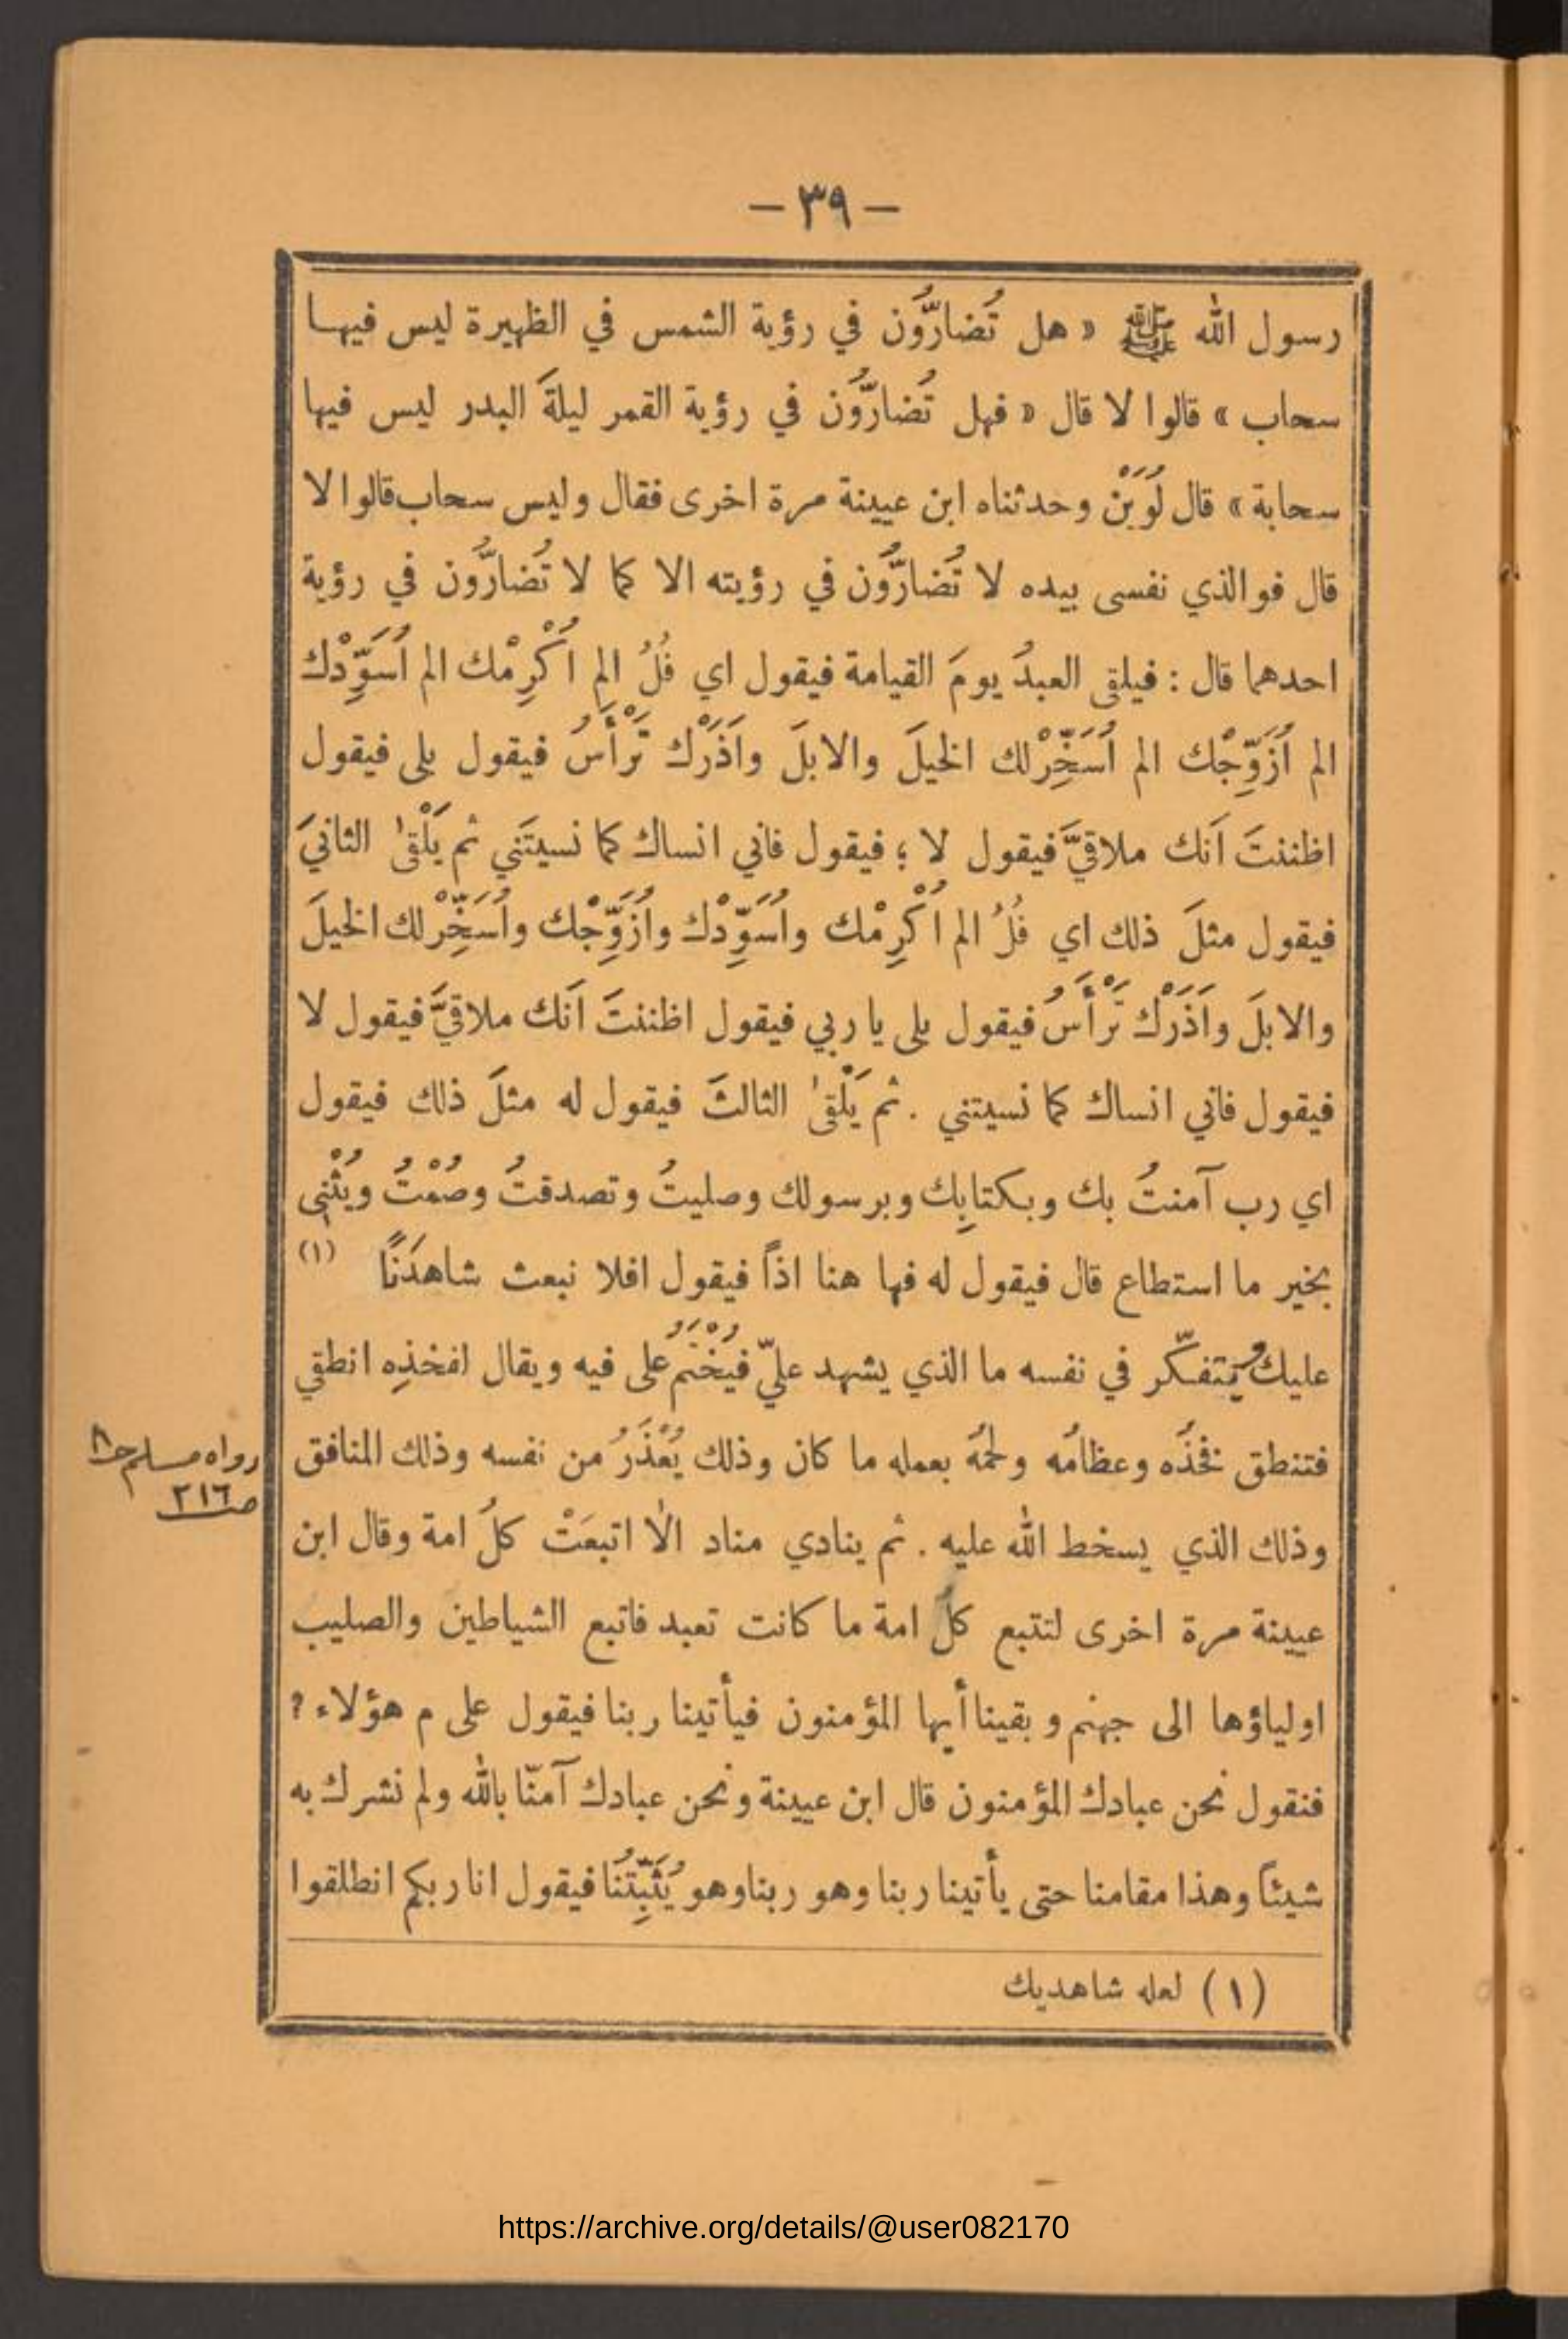 — ٣٩ —
رسول الله ﷺ « هل تُضارُّون في رؤية الشمس في الظهيرة ليس فيها
سحاب » قالوا لا قال « فهل تُضارُّون في رؤية القمر ليلةَ البدر ليس فيها
سحابة » قال لُوَيَنْ وحدثناه ابن عيينة مرة اخرى فقال وليس سحاب قالوا لا
قال فوالذي نفسى بيده لا تُضارُّون في رؤيته الا كما لا تُضارُّون في رؤية
احدهما قال : فيلقى العبدُ يومَ القيامة فيقول اي فُلُ الم اُكْرِمْك الم اُسَوِّدْك
الم اُزَوِّجْك الم اُسَخِّرْ لك الخيلَ والابلَ واَذَرْك تَرْأَسُ فيقول بلى فيقول
اظننتَ اَنك ملاقيَّ فيقول لا ؛ فيقول فاني انساك كما نسيتَني ثم يَلْقىٰ الثانيَ
فيقول مثلَ ذلك اي فُلُ الم اُكْرِمْك واُسَوِّدْك واُزَوِّجْك واُسَخِّرْ لك الخيلَ
والابلَ واَذَرْك تَرْأَسُ فيقول بلى يا ربي فيقول اظننتَ اَنك ملاقيَّ فيقول لا
فيقول فاني انساك كما نسيتني . ثم يَلْقىٰ الثالثَ فيقول له مثلَ ذلك فيقول
اي رب آمنتُ بك وبكتابِك وبرسولك وصليتُ وتصدقتُ وصُمْتُ ويُثْنِى
بخير ما استطاع قال فيقول له فها هنا اذاً فيقول افلا نبعث شاهدَنًا (١)
عليك ويتفكّر في نفسه ما الذي يشهد عليّ فيُخْتَمُ على فيه ويقال لفخذِه انطقي
فتنطق فخذُه وعظامُه ولحمُه بعمله ما كان وذلك يُعْذَرُ من نفسه وذلك المنافق
وذلك الذي يسخط الله عليه . ثم ينادي مناد الاٰ اتبعَتْ كلُ امة وقال ابن
عيينة مرة اخرى لتتبع كلُ امة ما كانت تعبد فاتبع الشياطين والصليب
اولياؤها الى جهنم وبقينا أيها المؤمنون فيأتينا ربنا فيقول على م هؤلاء ؟
فنقول نحن عبادك المؤمنون قال ابن عيينة ونحن عبادك آمنّا بالله ولم نشرك به
شيئاً وهذا مقامنا حتى يأتينا ربنا وهو ربنا وهو يُثَبِّتُنَا فيقول انا ربكم انطلقوا
(١) لعله شاهديك
رواه مسلم ح٨
ص٢١٦
https://archive.org/details/@user082170